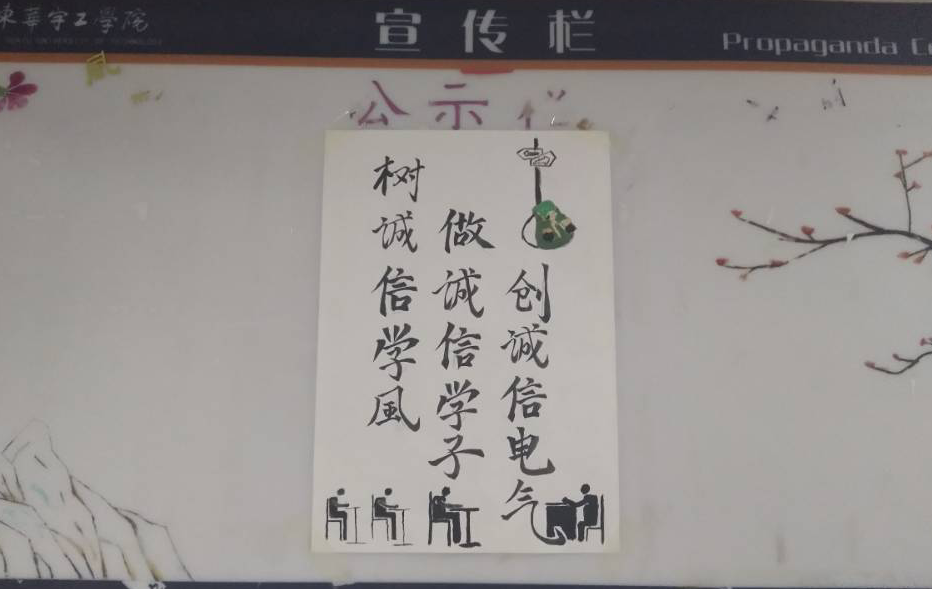 東華宇工學院
宣传栏
Propaganda
公示栏
树诚信学風
做诚信学子
创诚信电气